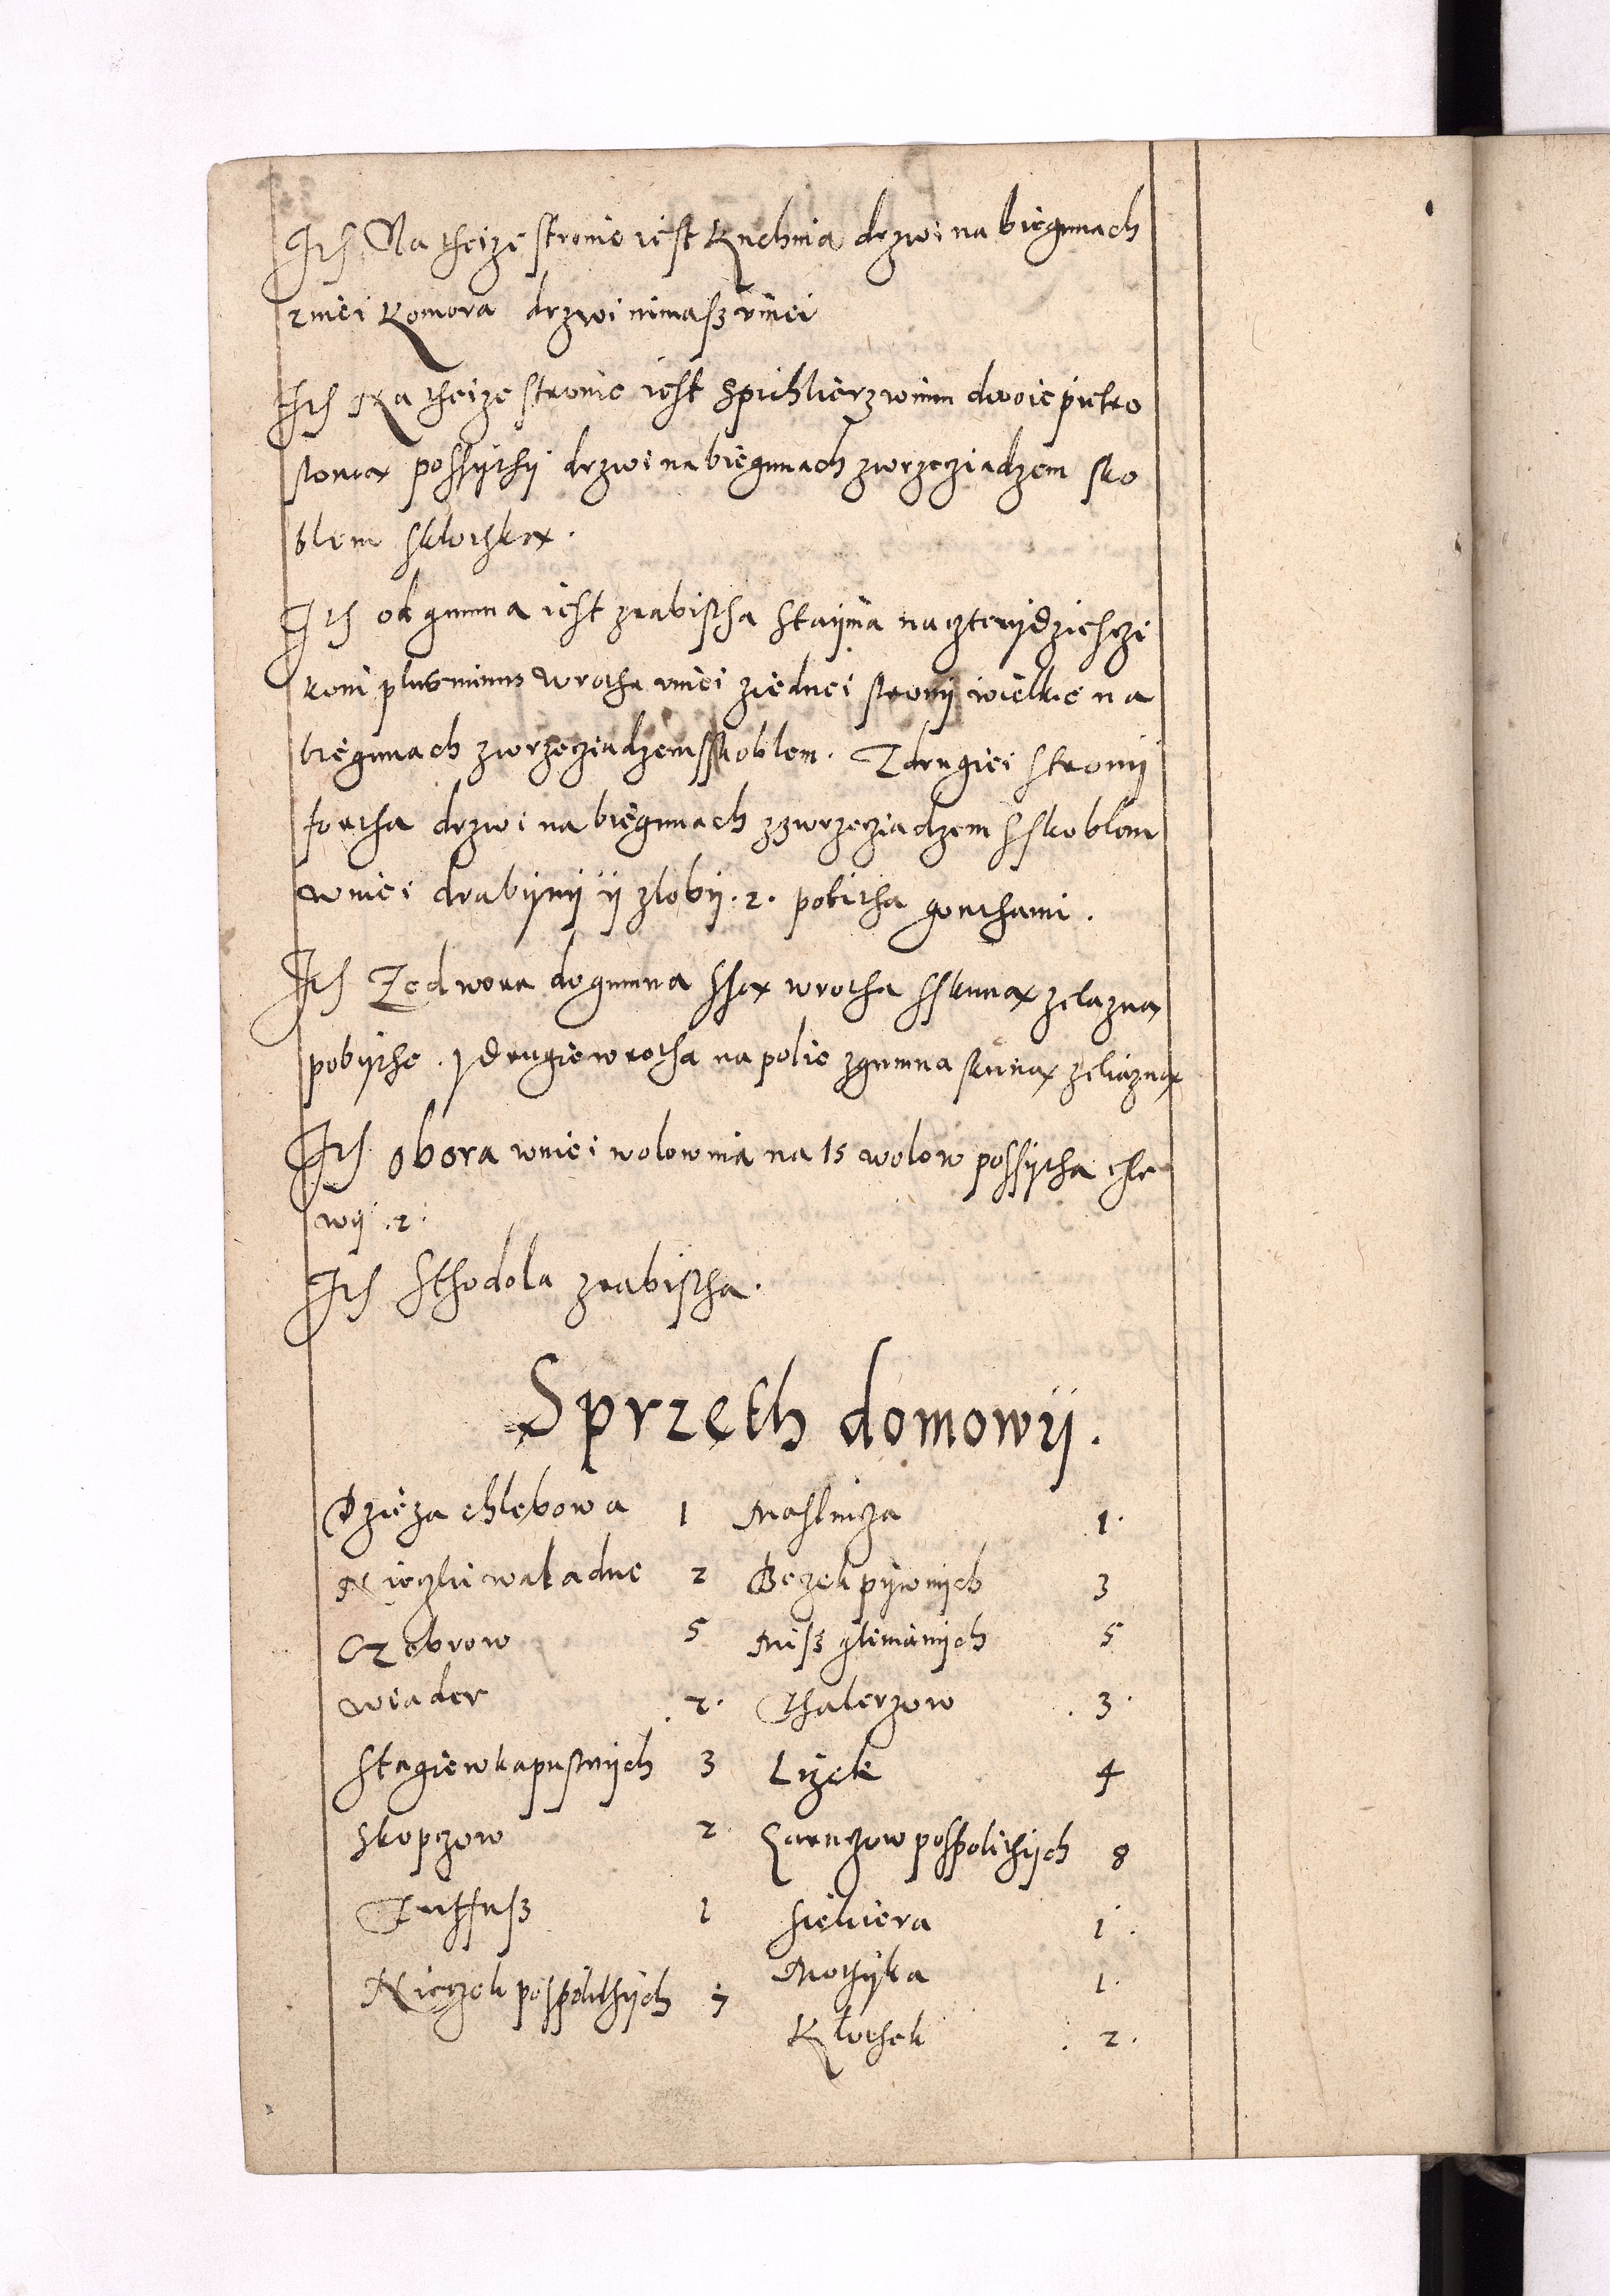 Ith Na theize stronie iest Kuchnia drzwi na biegunach
z niei Komora drzwi nimasz v niei
Ith Na theize stronie iest Spichlierz w nim dwoie pietro
słomą possythy drzwi na biegunach z wrzecziadzem sko
blem s klothką.
Ith od gumna iest zrabistha Stayna na czterydziesczi
koni plus minus wrotha v niei z iednei strony wielkie na
biegunach z wrzecziadzem s skoblem. Z drugiei strony
fortha drzwi na biegunach z wrzecziadzem s skoblem
w niei drabyny y zloby .2. pobitha gonthami.
Ith Ze dwora do gumna ssą wrotha s skuną zelazną
pobythe. y drugie wrotha na polie z gumna skuną zeliazną
Ith obora w niei wolownia na 15 wolow possytha chle
wy .2.
Ith Sthodola zrabistha.
Sprzęth domowy.
Dzieza chlebowa 1 Maslnicza 1.
Nieczki wakadne 2 Beczek pywnych 3
Czebrow 5 Misz glinianych 5
Wiader .2. Thalerzow .3.
Stągiew kapustnych 3 Lyzek 4
Skopczow 2 Garnczow pospolithych 8
Tuthfasz 1 Siekiera 1.
Nieczek pospolithych 7 Mothyka 1.
Klothek .2.